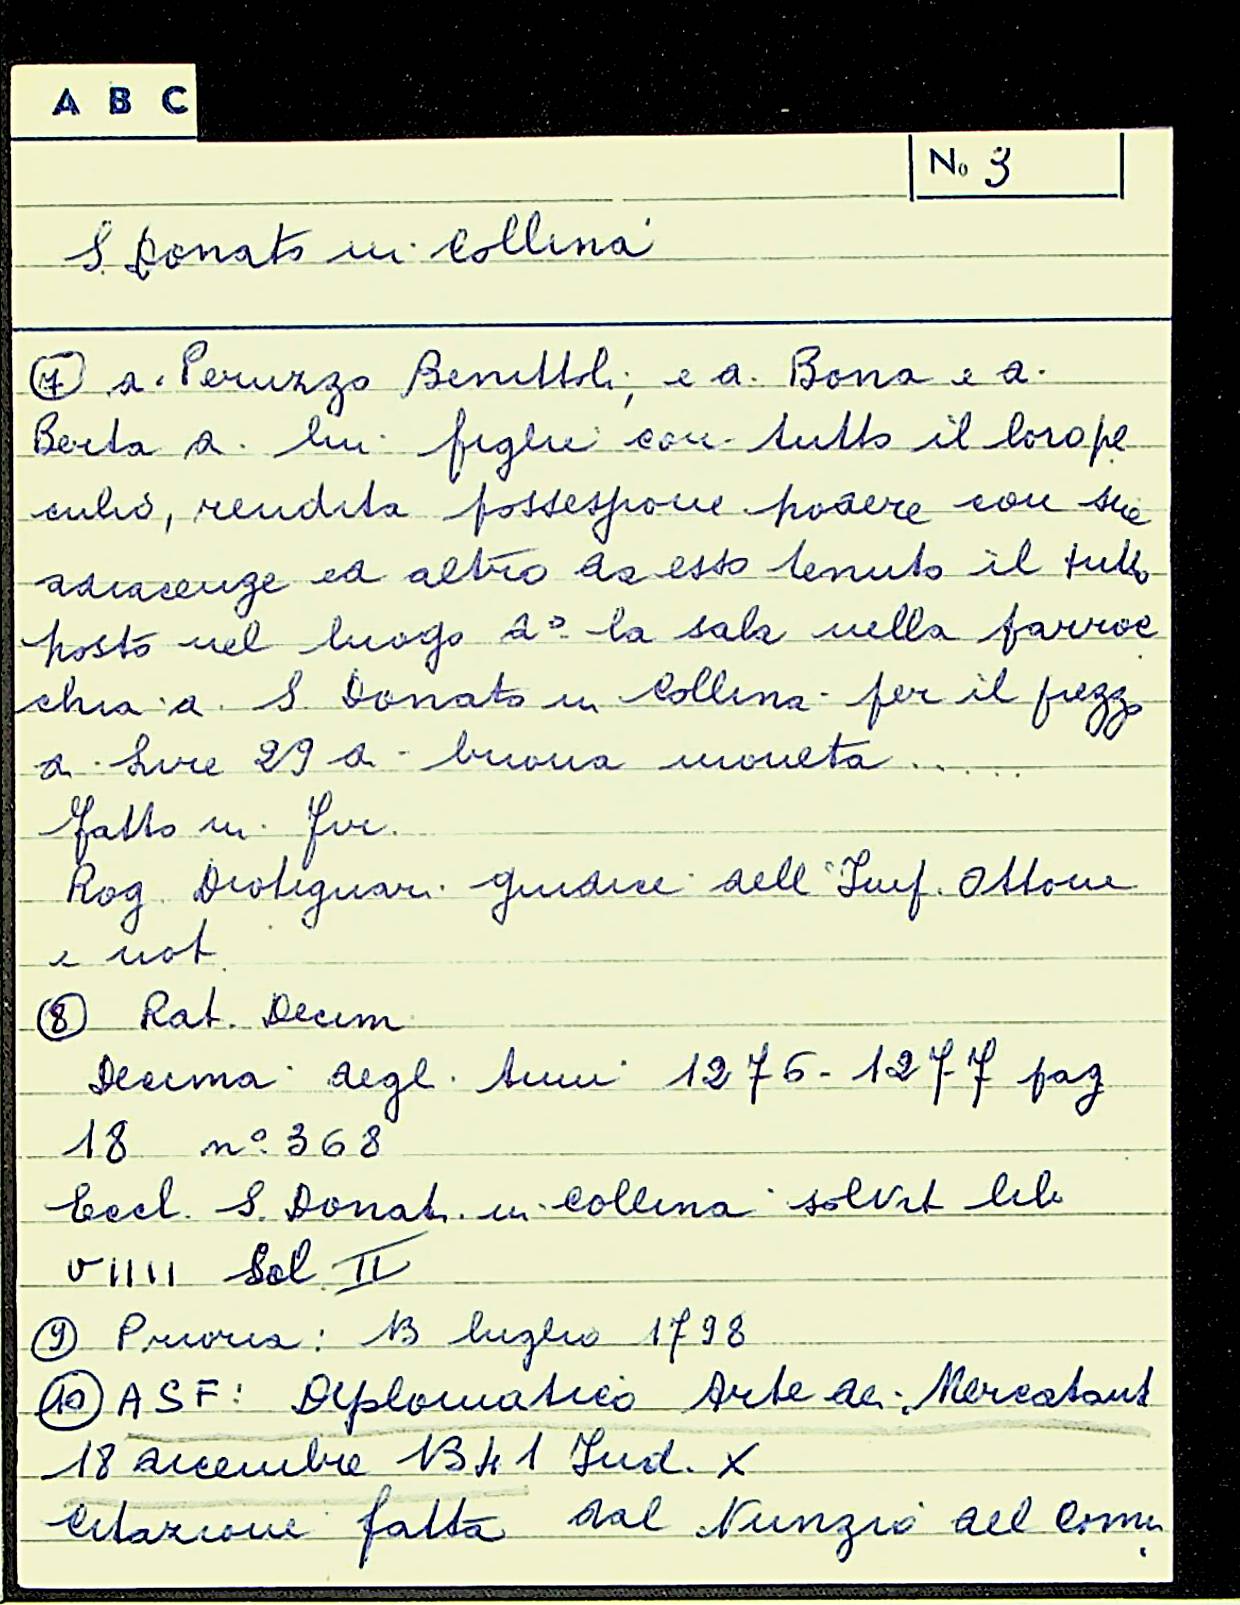 A B C
No 3
S. Donato in Collina
⑦ a. Peruzzo Benittoli, e a. Bona e a.
Berta a. lui figlie con tutto il loro pe
culio, rendita possessione podere con sue
adiacenze ed altro da esso tenuto il tutto
posto nel luogo do la sala nella parroc
chia a. S. Donato in Collina per il prezzo
a. Lire 29 a. buona moneta .....
Fatto in Fir.
Rog Diotiguari giudice dell'Imp. Ottone
e not
⑧ Rat. Decim
Decima degl. Anni 1276-1277 pag
18 n° 368
Eccl. S. Donati in Collina solvit lib
VIIII Sol II
⑨ Prioria: 13 luglio 1798
⑩ ASF: Diplomatico Arte dei Mercatant
18 dicembre 1341 Ind. X
Citazione fatta dal Nunzio del Comu